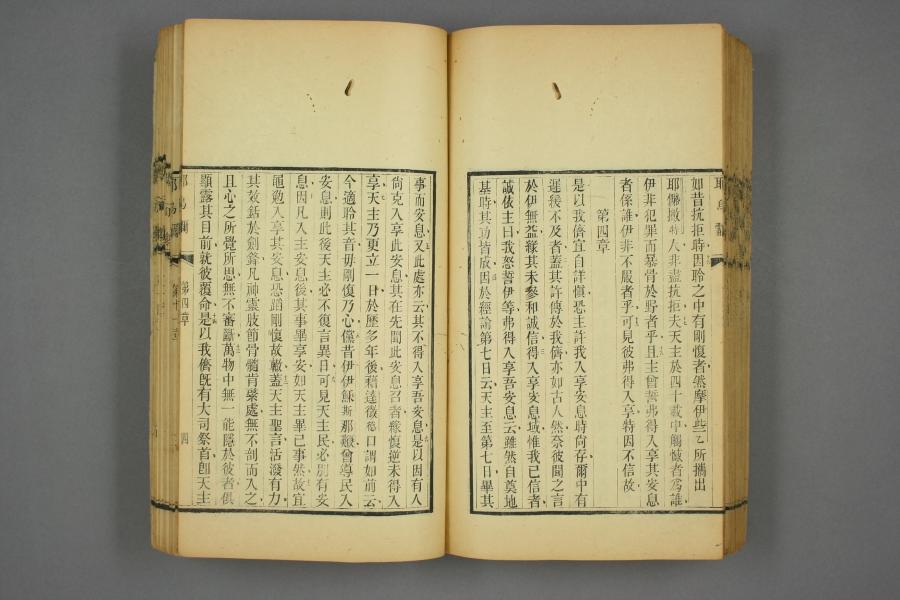 如昔抗拒時因聆之中有剛愎者然摩伊些乙所攜出
耶儞撒特人非盡抗拒夫天主於四十載中觸憾者為誰
伊非犯罪而暴骨於野者乎且主曾誓弗得入享其安息
者係誰伊非不服者乎可見彼弗得入享特因不信故
第四章
是以我儕宜自謹慎恐主許我入享安息時尚存爾中有
遲緩不及者蓋其許傳於我儕亦如古人然奈彼聞之言
於伊無益緣其未參和誠信得入享安息域惟我已信者
誠依主曰我怒誓伊等弗得入享吾安息云雖然自奠地
基時其功皆成因於經論第七日云天主至第七日畢其
事而安息又此處亦云其不得入享吾安息是以因有人
尚克入享此安息其在先聞此安息召者緣愎逆未得入
享天主乃更立一日於歷多年後藉達微德口謂如前云
今適聆其音毋剛愎乃心儻昔伊伊穌斯那
安息則此後天主必不復言異日可見天主民必別有安
息因凡入主安息後其事畢享安如天主畢己事然故宜
黽勉入享其安息恐蹈剛愎故轍蓋天主聖言活潑有力
其效銛於劍鋒凡神靈肢節骨髓肯綮處無不剖而入之
且心之所覺所思無不審鑒萬物中無一能隱於彼者俱
顯露其目前就彼覆命是以我儕既有大司祭首即天主
第四章
四